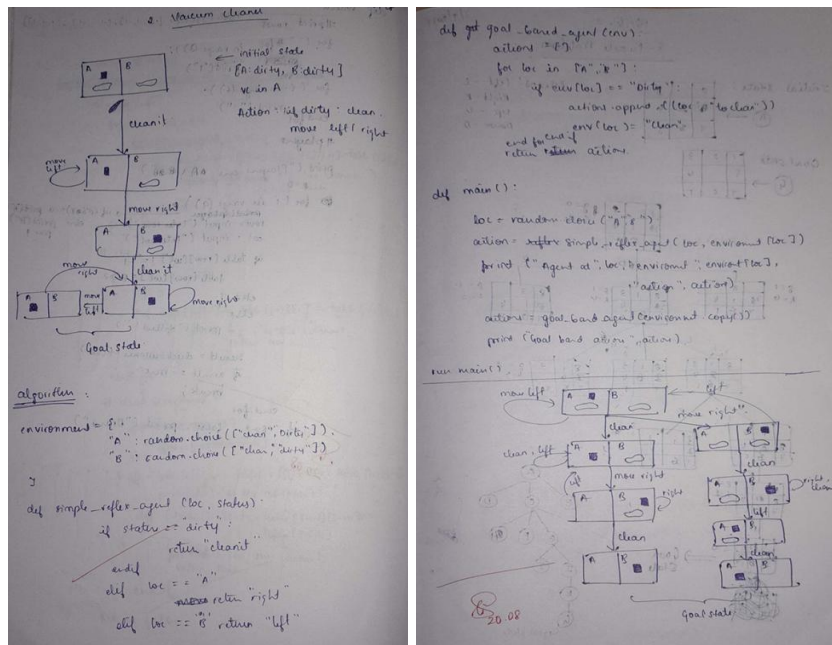 2. Vacuum cleaner
A
B
initial state
[A: dirty, B: dirty]
vc in A
Action: if dirty: clean.
move left / right
clean it
move left
A
B
move right
A
B
move right
clean it
A
B
move left
A
B
move right
Goal state
algorithm :
environment = {
"A" : random.choice(["clean", "Dirty"]),
"B" : random.choice(["clean", "dirty"])
}
def simple_reflex_agent (loc, status)
if status == "dirty" :
return "cleanit"
endif
elif loc == "A"
return "right"
elif loc == "B" return "left"
def get goal_based_agent (env)
actions = []
for loc in ["A", "B"] :
if env[loc] == "Dirty" :
actions.append ((loc, "to clean"))
env[loc] = "clean"
end if
end for
return actions.
def main () :
loc = random choice ("A" "B")
action = simple_reflex_agent (loc, enviroment [loc])
print ("Agent at", loc, "enviroment", enviroment [loc],
"action", action)
actions = goal_based_agent (enviroment copy())
print (Goal based action", action)
run main()
move left
A
B
left
move right
clean
A
B
clean, left
A
B
clean
move right
A
B
right, clean
left
A
B
right
left
A
B
clean
clean
A
B
A
B
Goal state
20.08